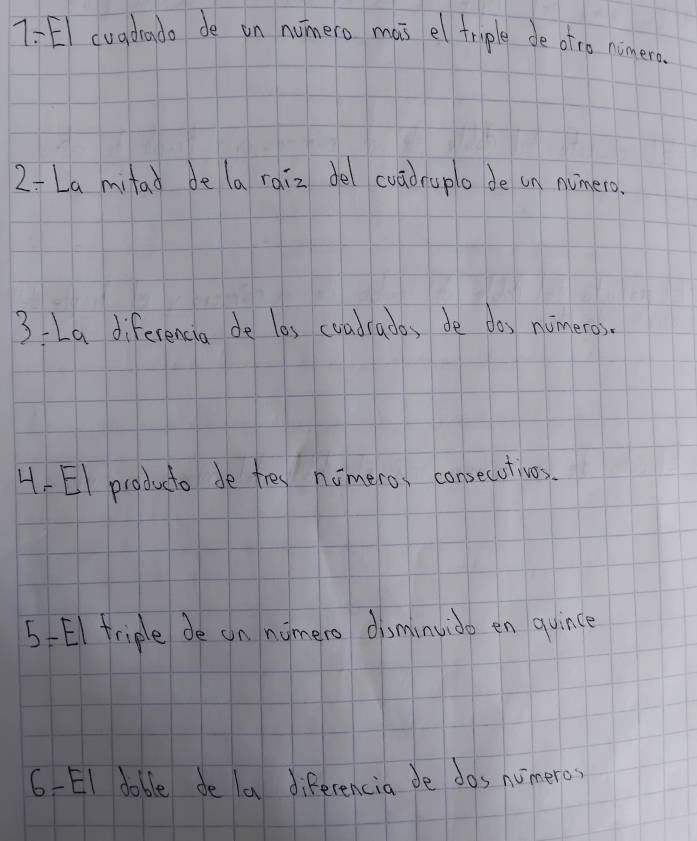 1.- El cuadrado de un número más el triple de otro número.
2.- La mitad de la raíz del cuádruplo de un número.
3.- La diferencia de los cuadrados de dos números.
4.- El producto de tres números consecutivos.
5.- El triple de un número disminuido en quince
6.- El doble de la diferencia de dos números